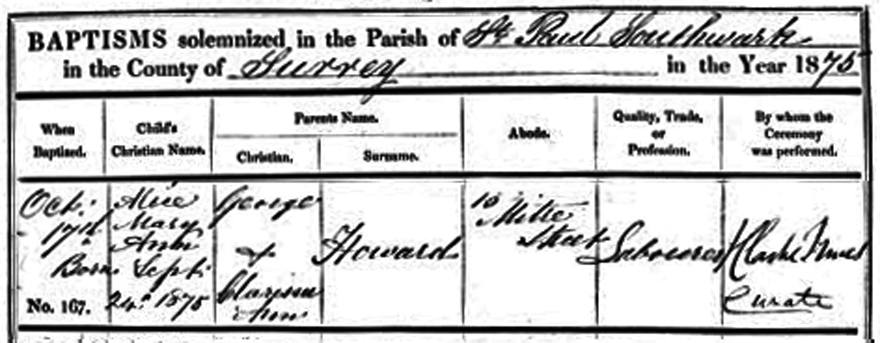 BAPTISMS solemnized in the Parish of St. Paul Southwark
in the County of Surrey in the Year 1875
When Baptized.
Child's Christian Name.
Parents Name.
Christian.
Surname.
Abode.
Quality, Trade, or Profession.
By whom the Ceremony was performed.
Oct.
17th
Born
No. 167.
Alice
Mary
Ann
Sept.
24th 1875
George
&
Clarissa
Ann
Howard
10
Street
Labourer
Curate